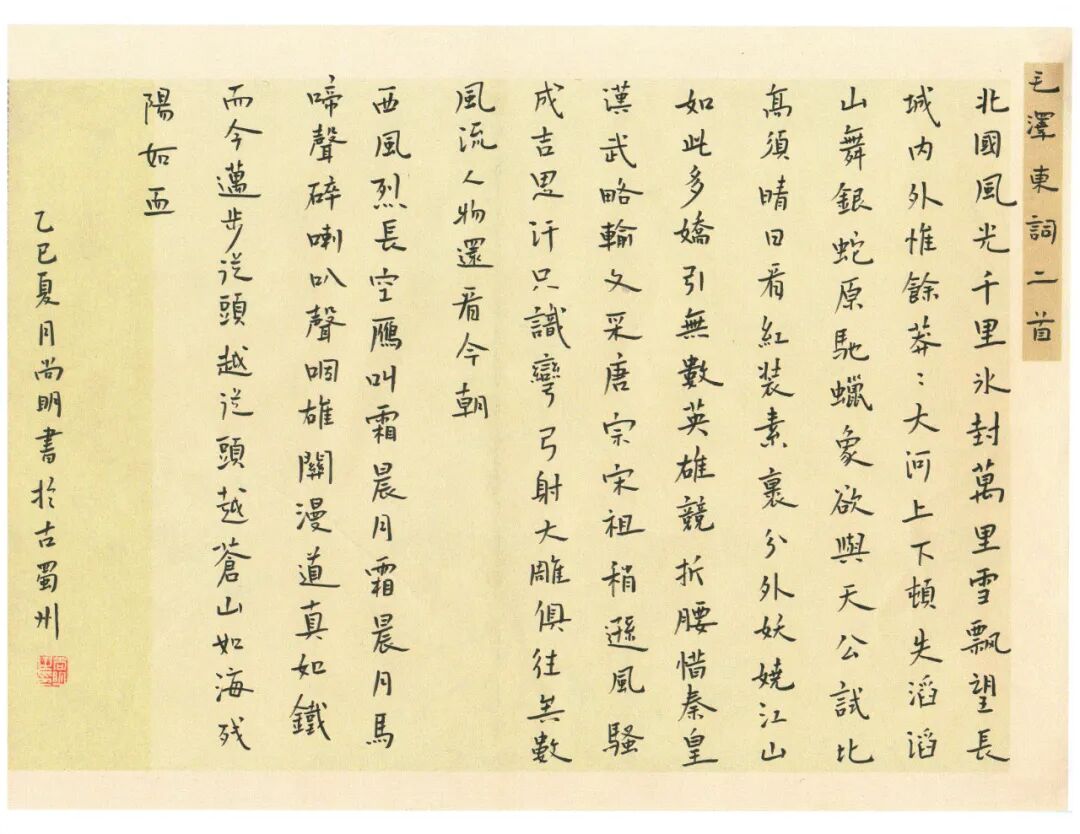 毛澤東詞二首
北國風光千里氷封萬里雪飄望長
城内外惟餘莽〻大河上下頓失滔滔
山舞銀蛇原馳蠟象欲與天公試比
高須晴日看紅裝素裹分外妖嬈江山
如此多嬌引無數英雄競折腰惜秦皇
漢武略輸文采唐宗宋祖稍遜風騷
成吉思汗只識彎弓射大雕俱往矣數
風流人物還看今朝
西風烈長空鴈叫霜晨月霜晨月馬
啼聲碎喇叭聲咽雄關漫道真如鐵
而今邁步從頭越從頭越蒼山如海残
陽如血
乙巳夏月尚明書於古蜀州